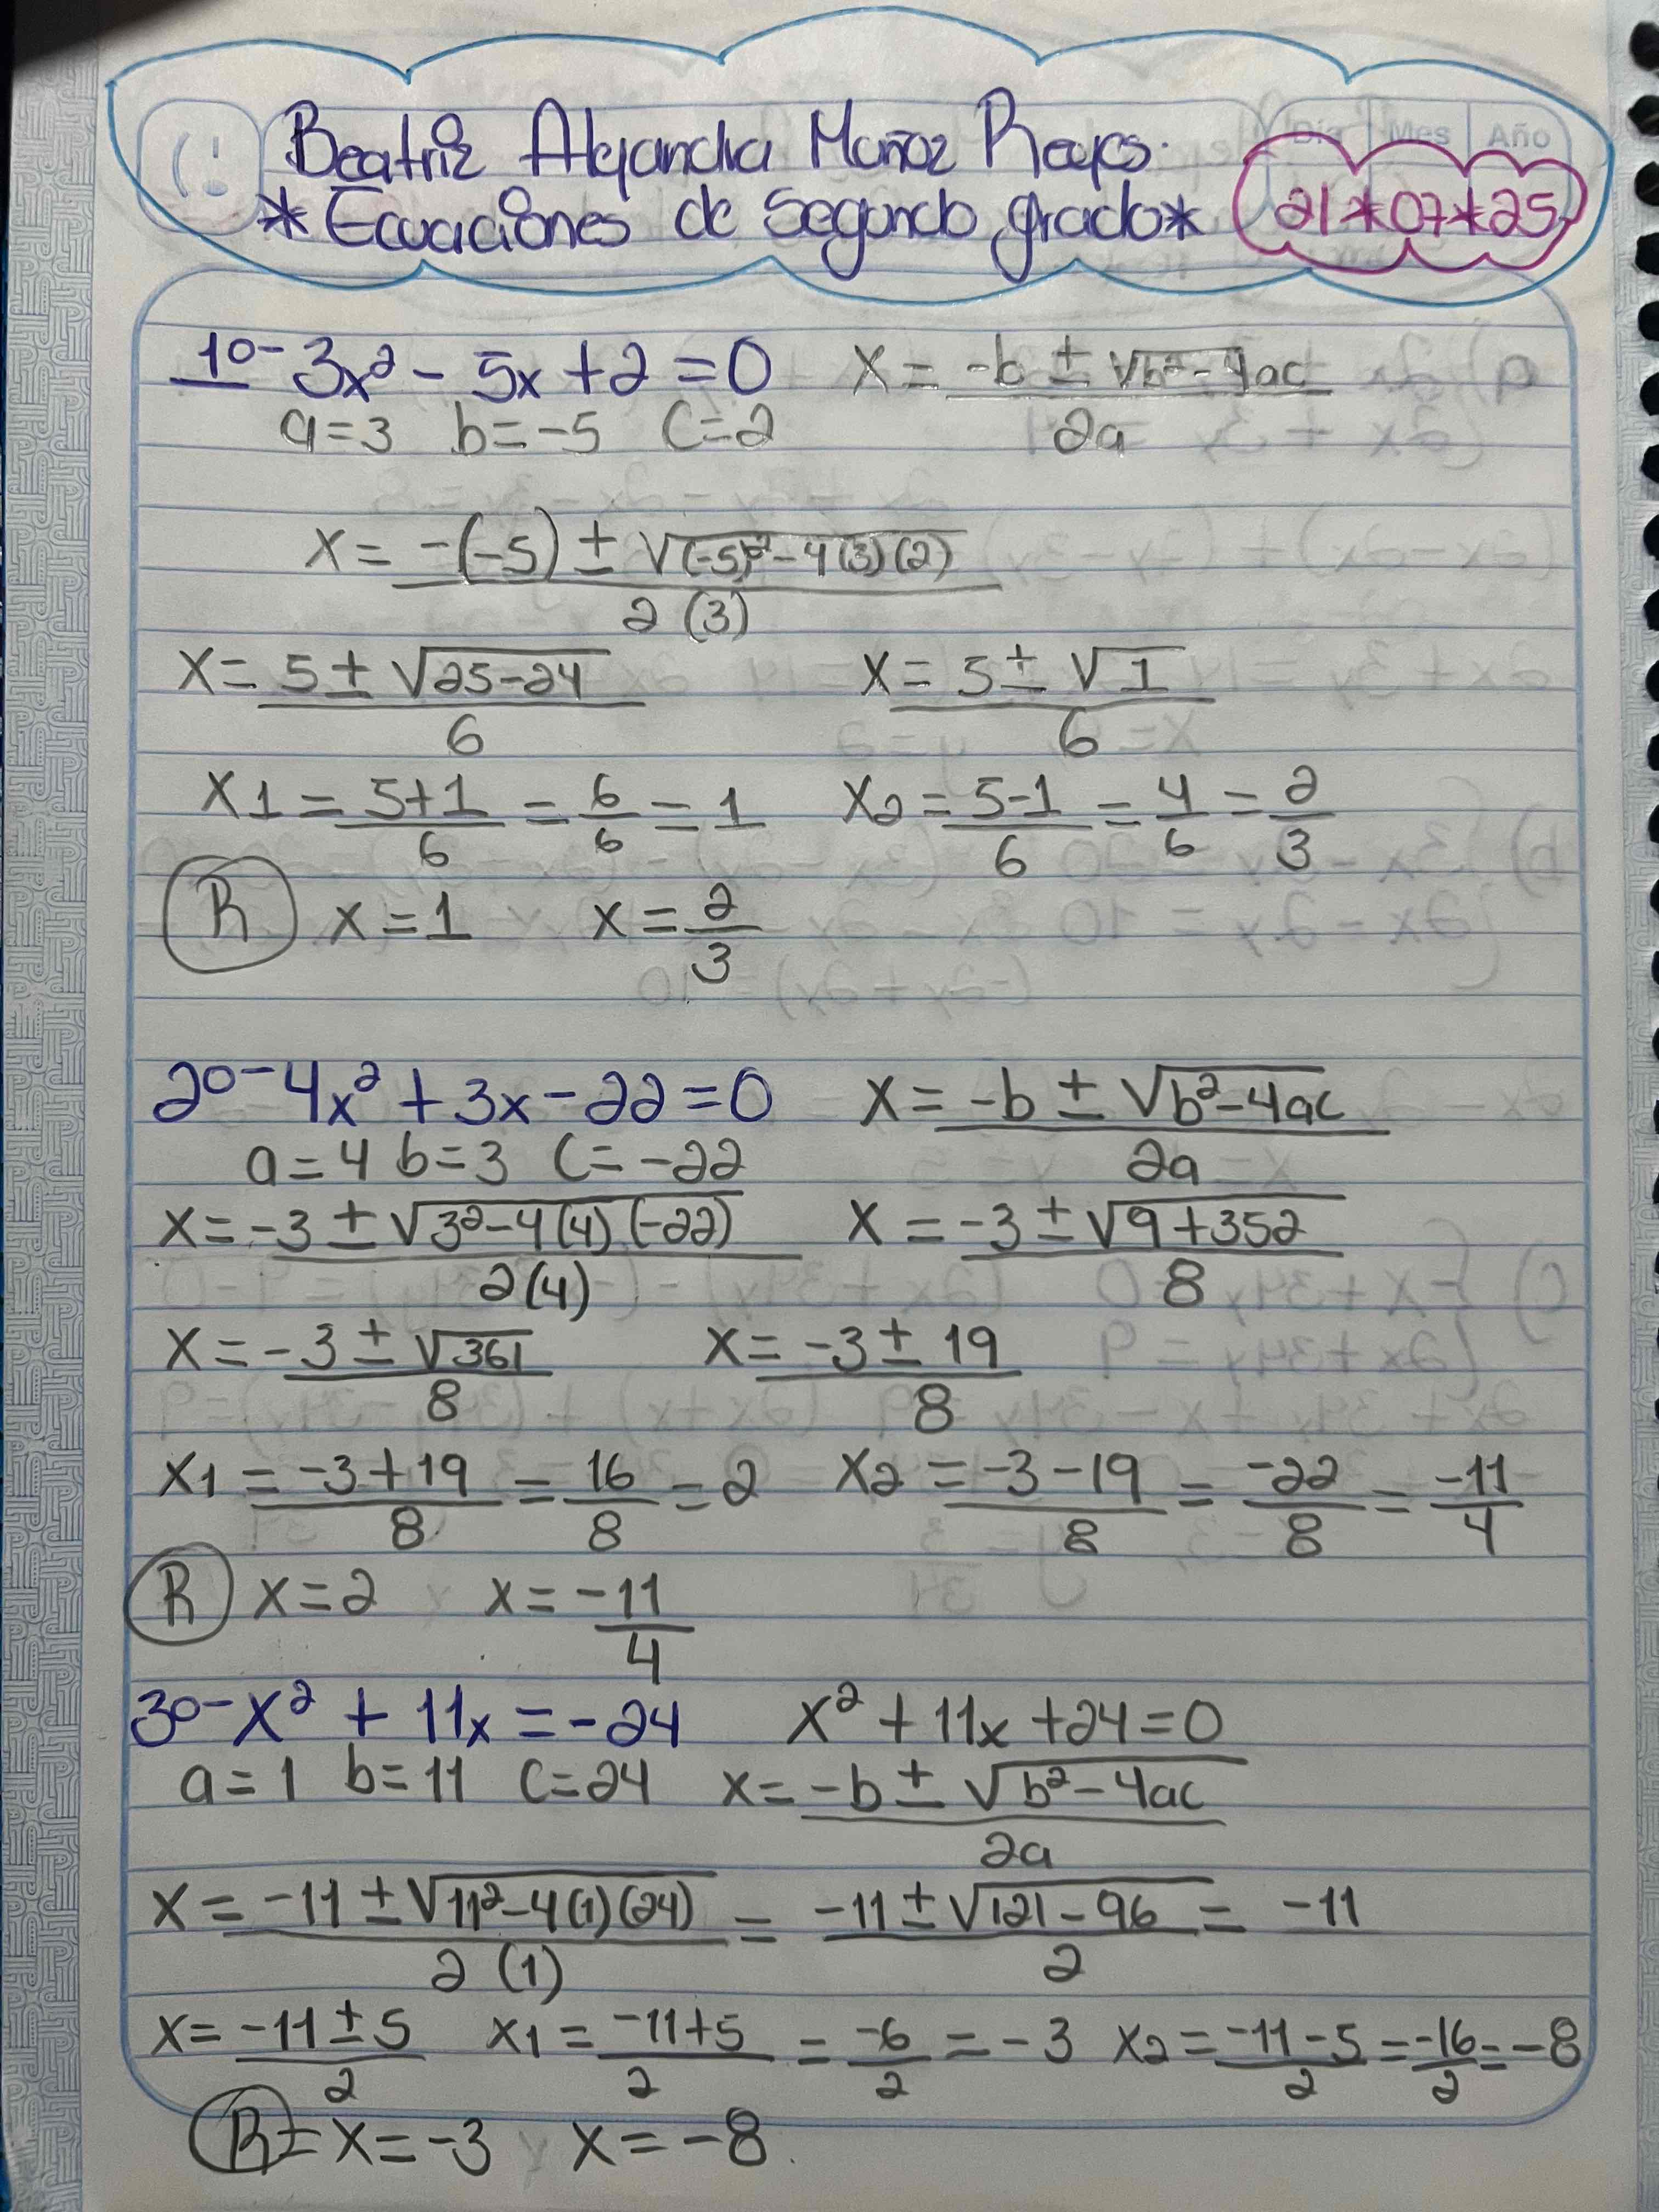 Beatriz Alejandra Muñoz Reyes.
Día Mes Año
*Ecuaciones de Segundo grado* 21*07*25
10- 3x² - 5x + 2 = 0 x = -b ± √b² - 4ac / 2a
a = 3 b = -5 c = 2
x = -(-5) ± √(-5)² - 4(3)(2) / 2(3)
x = 5 ± √25-24 / 6 x = 5 ± √1 / 6
x1 = 5+1 / 6 = 6/6 = 1 x2 = 5-1 / 6 = 4/6 = 2/3
R x = 1 x = 2/3
20- 4x² + 3x - 22 = 0 x = -b ± √b² - 4ac / 2a
a = 4 b = 3 c = -22
x = -3 ± √3² - 4(4)(-22) / 2(4) x = -3 ± √9+352 / 8
x = -3 ± √361 / 8 x = -3 ± 19 / 8
x1 = -3+19 / 8 = 16/8 = 2 x2 = -3-19 / 8 = -22/8 = -11/4
R x = 2 x = -11/4
30- x² + 11x = -24 x² + 11x + 24 = 0
a = 1 b = 11 c = 24 x = -b ± √b² - 4ac / 2a
x = -11 ± √11² - 4(1)(24) / 2(1) = -11 ± √121 - 96 / 2 = -11
x = -11 ± 5 / 2 x1 = -11+5 / 2 = -6/2 = -3 x2 = -11-5 / 2 = -16/2 = -8
R = x = -3 x = -8